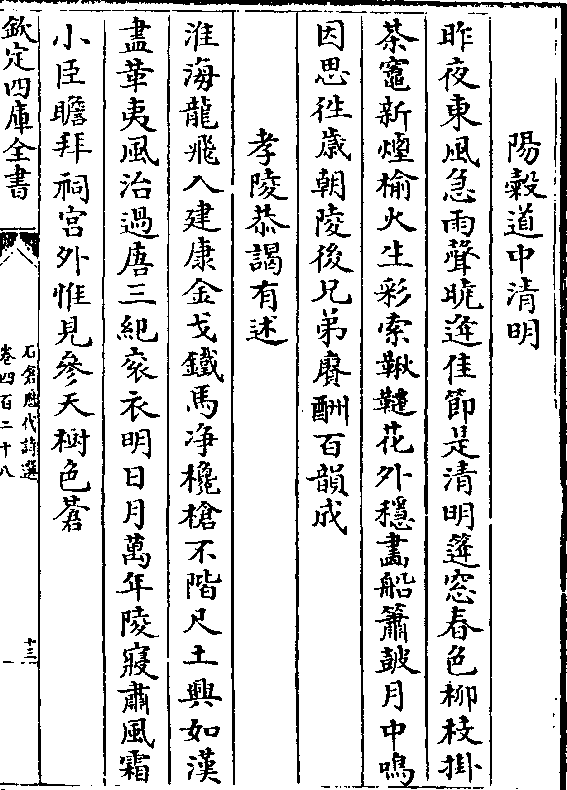 陽穀道中清明
昨夜東風急雨聲曉逢佳節是清明篷窓春色柳枝掛
茶竈新煙榆火生彩索鞦韆花外穩畫船簫鼓月中鳴
因思徃歲朝陵後兄弟賡酬百韻成
孝陵恭謁有述
淮海龍飛入建康金戈鐵馬净欃槍不階尺土興如漢
盡革夷風治過唐三紀衮衣明日月萬年陵寢肅風霜
小臣瞻拜祠宫外惟見參天樹色蒼
欽定四庫全書
石倉歷代詩選
卷四百二十八
十三